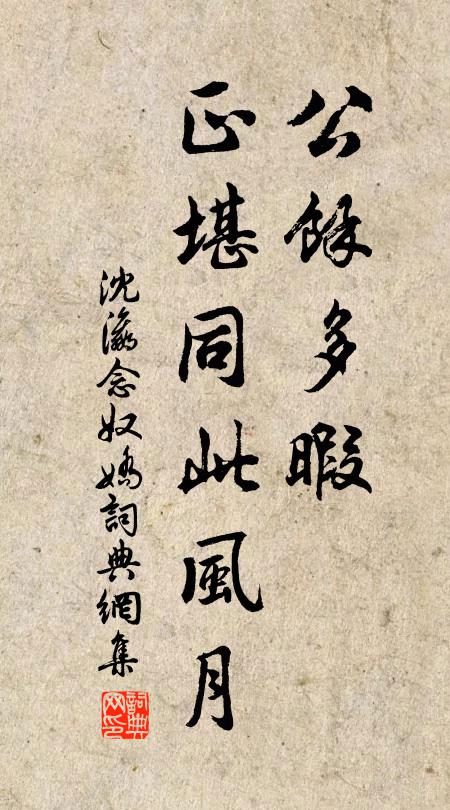 公餘多暇
正堪同此風月
沈瀛念奴嬌詞典網集
詞典网印